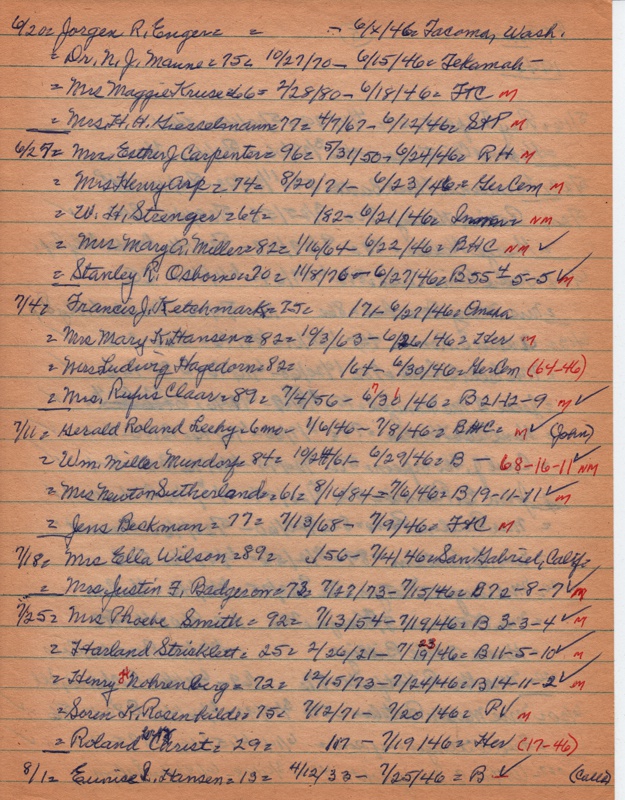 6/20= Jorgen R. Enger= = - 6/x/46= Tacoma, Wash.
= Dr. N. J. Maune= 75= 10/27/70- 6/15/46= Tekamah-
= Mrs Maggie Kruse= 66= 2/28/80- 6/18/46= FtC M
= Mrs. H. H. Giesselmann= 77= 4/7/67- 6/12/46= StP M
6/27= Mrs. Esther J Carpenter= 96= 5/31/50- 6/24/46= RH M
= Mrs Henry Arp= 74= 8/20/71- 6/23/46= GerCem M
= W. H. Strenger= 64= 182- 6/21/46= NM
= Mrs Mary A. Miller= 82= 1/16/64- 6/22/46= BHC NM ✓
= Stanley R. Osborne= 70= 11/8/76- 6/27/46= B 55-5-5 ✓ M
7/4= Francis J. Ketchmark= 75= 171- 6/27/46= Omaha
= Mrs Mary K. Hansen= 82= 10/3/63- 6/26/46= Her M
= Mrs Ludwig Hagedorn= 82= 164- 6/30/46= GerCem (64-46)
= Mrs. Rufus Claar= 89= 7/4/56- /46= B 2-12-9 M ✓
7/11= Gerald Roland Leehy= 6mo- 1/6/46- 7/8/46= BHC= M ✓ (John)
= Wm. Miller Mundorf= 84= 10/24/61- 6/29/46= B - 68-16-11 ✓ NM
= Mrs Newton Sutherland= 61= 8/16/84= 7/6/46= B 19-11-11 ✓ M
= Jens Beckman= 77= 7/13/68- 7/9/46= FtC M
7/18= Mrs Ella Wilson= 89= 156- 7/4/46= San Gabriel, Calif=
= Mrs. Justin F. Badgerow= 73= 7/27/73- 7/15/46= B72-8-7 ✓ M
7/25= Mrs Phoebe Smith= 92= 7/13/54- 7/19/46= B 3-3-4 ✓ M
= Harland Stricklett= 25= 2/26/21- 7/23/46= B11-5-10 ✓ M
= Henry Nohrenberg= 72= 12/15/73- 7/24/46= B14-11-2 ✓ M
= Soren K. Rosenkilde= 75= 7/12/71- 7/20/46= P ✓ M
= Roland Christ= 29= 117- 7/19/46= Her (17-46)
8/1= Eunice L. Hansen= 13= 4/12/33- 7/25/46= B ✓